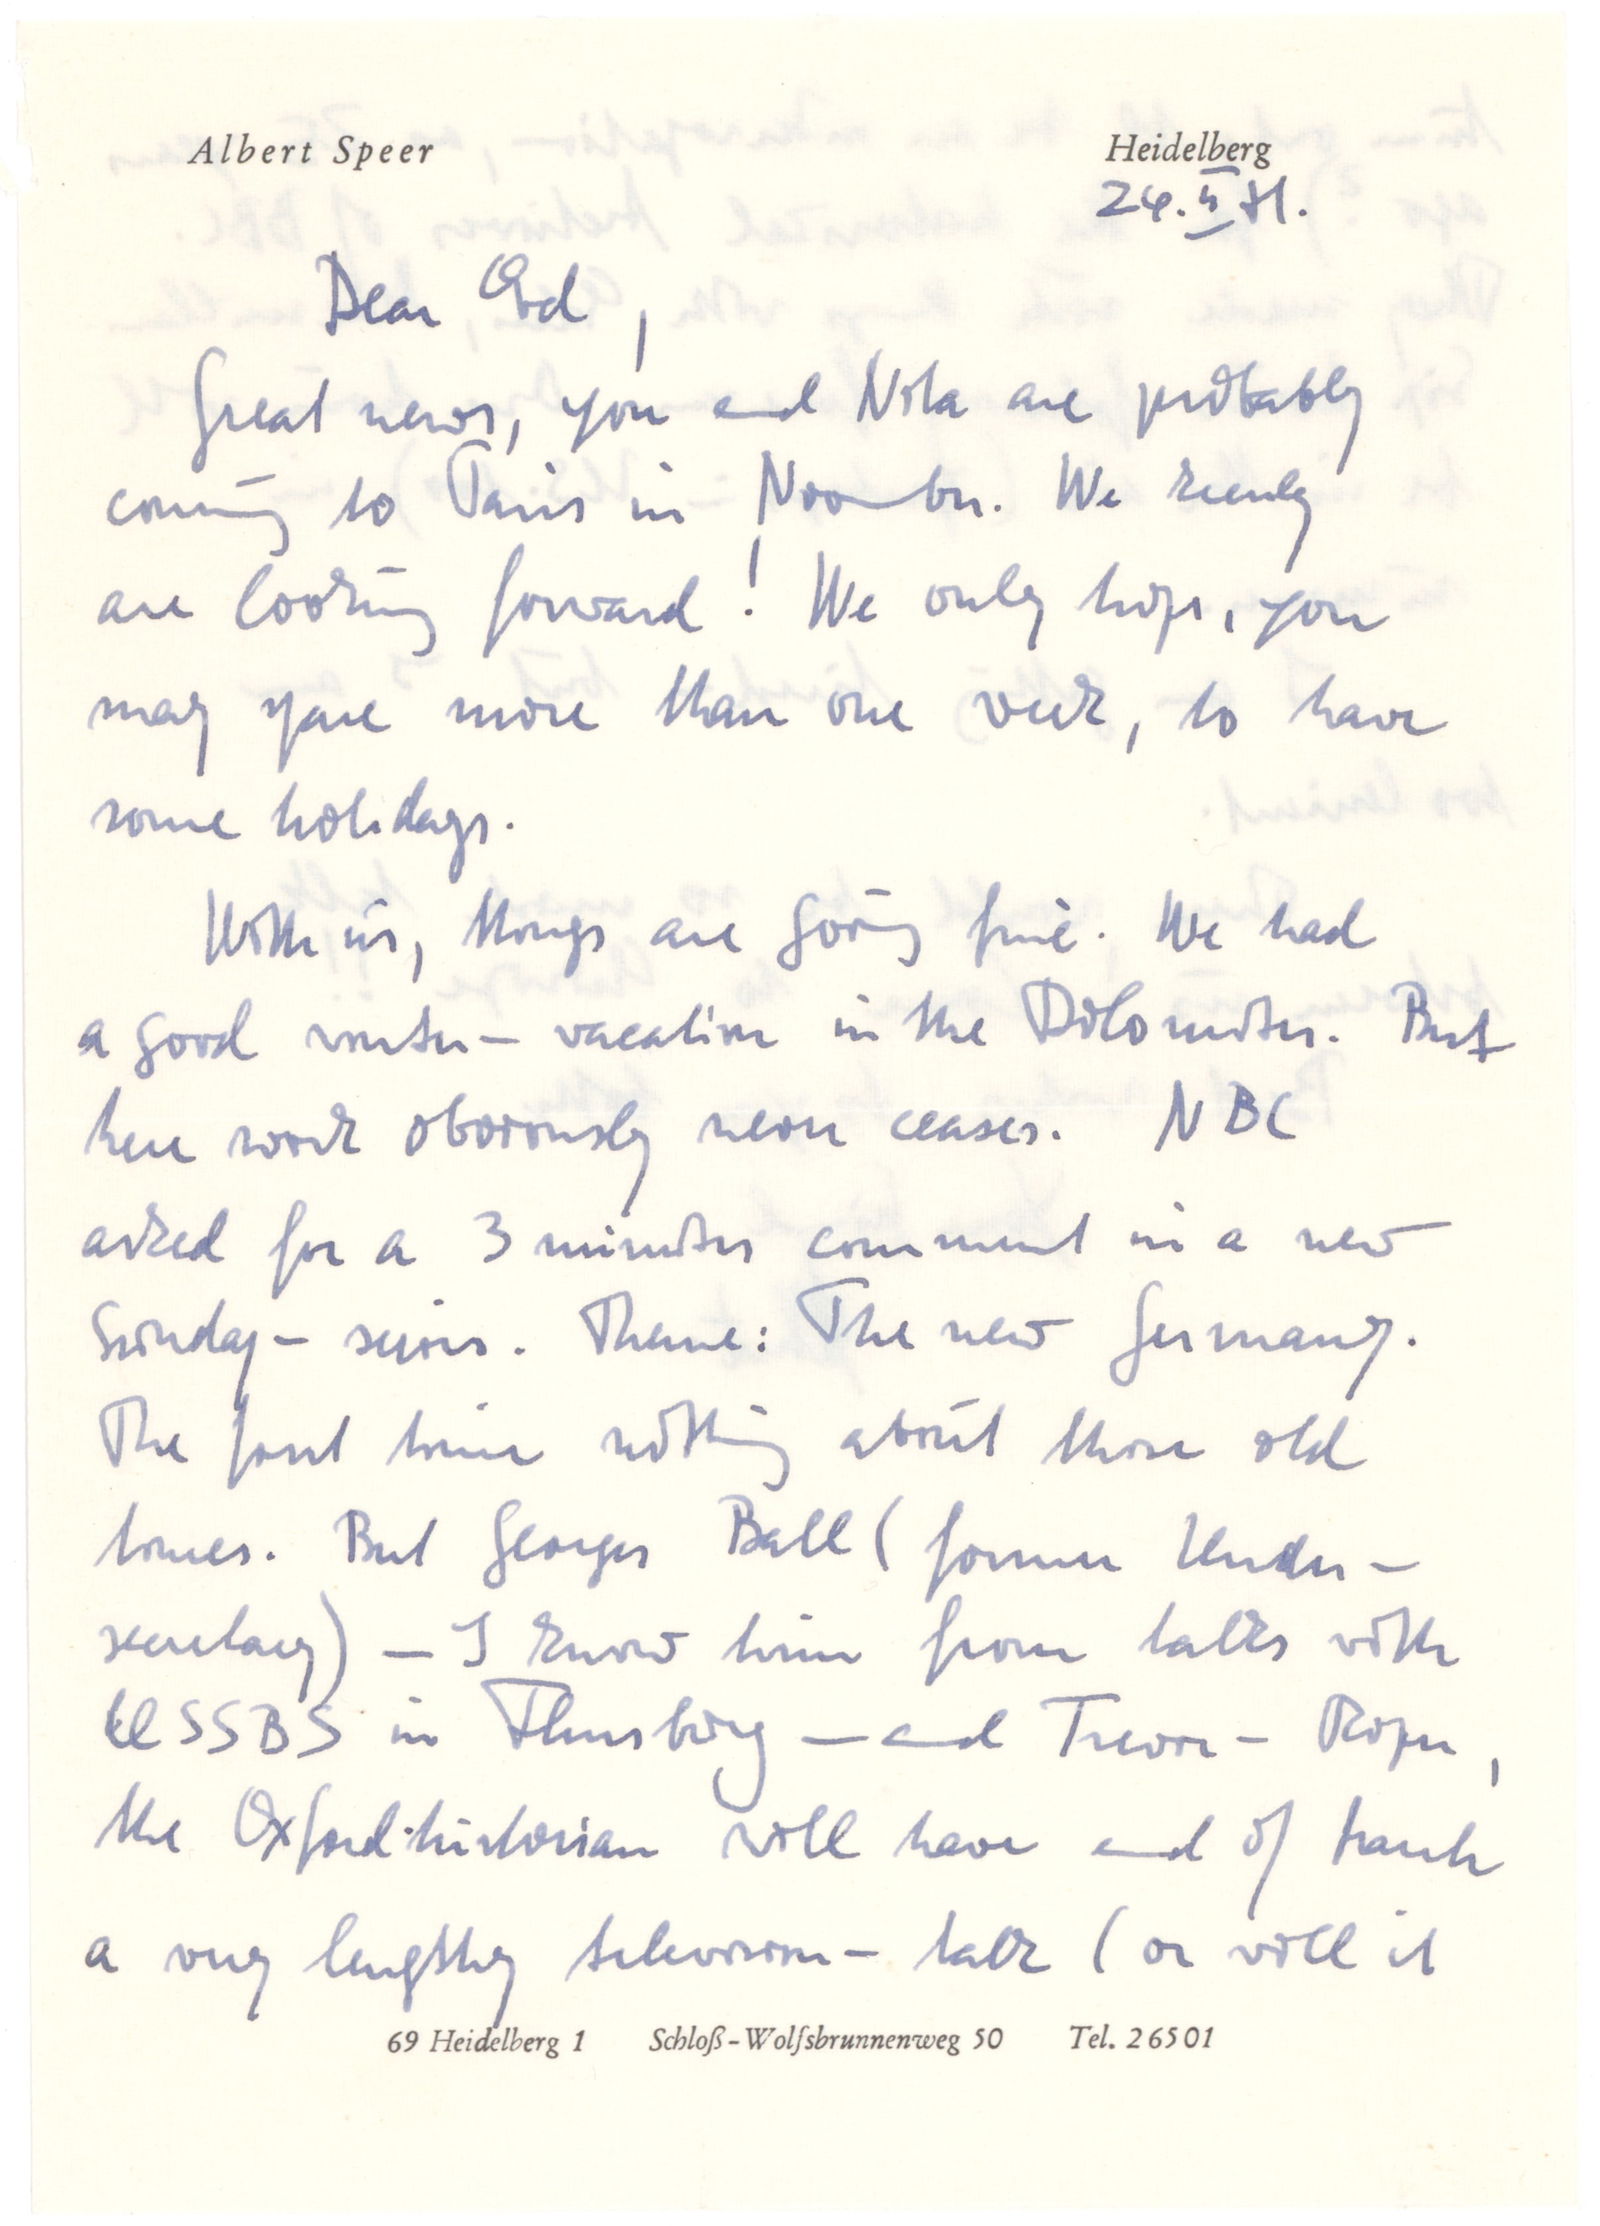 Albert Speer Heidelberg
Dear Ord,
Great news, you and Nola are probably
coming to Paris in November. We
are looking forward! We only hope, you
may spare more than one week, to have
some holidays.
With us, things are going fine. We had
a good winter-vacation in the Dolomites. But
here work obviously never ceases. NBC
asked for a 3 minutes comment in a new
Sunday- series. Theme: The new Germany.
The first time nothing about those old
times. But Georges Ball (former Under-
secretary) - I know him from talks with
USSBS in Flensburg - and Trevor-Roper,
the Oxford-historian will have end of March
a very lengthy television-talk (or will it
69 Heidelberg 1 Schloß-Wolfsbrunnenweg 50 Tel. 26501